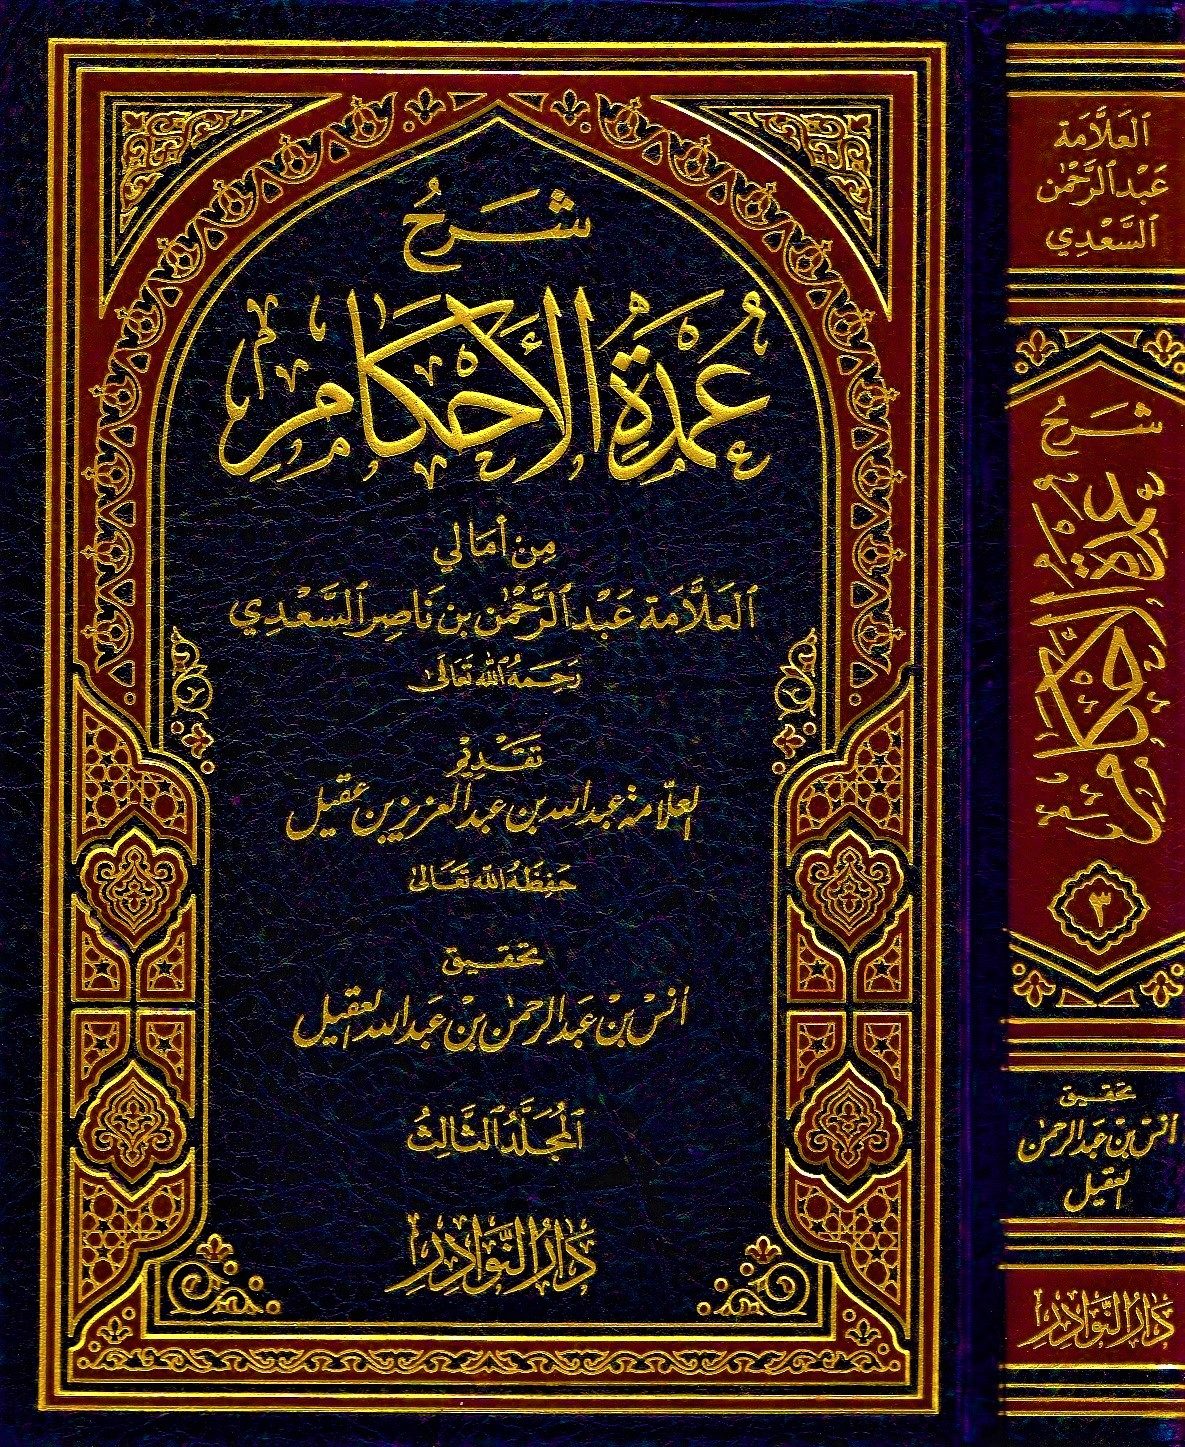 شَرْحُ
عُمْدَةِ الأَحْكَامِ
مِنْ أَمَالِي
العَلَّامَة عَبْد الرَّحْمٰن بن نَاصِر السَّعْدِي
رَحِمَهُ اللهُ تَعَالَىٰ
تَقْدِيْم
العلّامة عبد الله بن عبد العزيز بن عقيل
حَفِظَهُ اللهُ تَعَالىٰ
تحقيق
أنس بن عبد الرحمٰن بن عبد الله العقيل
المُجَلَّدُ الثَّالِثُ
دَارُ النَّوَادِرِ
العَلَّامَة
عَبْد الرَّحْمٰن
السَّعْدِي
شَرْحُ
عُمْدَةِ الأَحْكَامِ
٣
تحقيق
أنس بن عبد الرحمٰن
العقيل
دَارُ النَّوَادِرِ